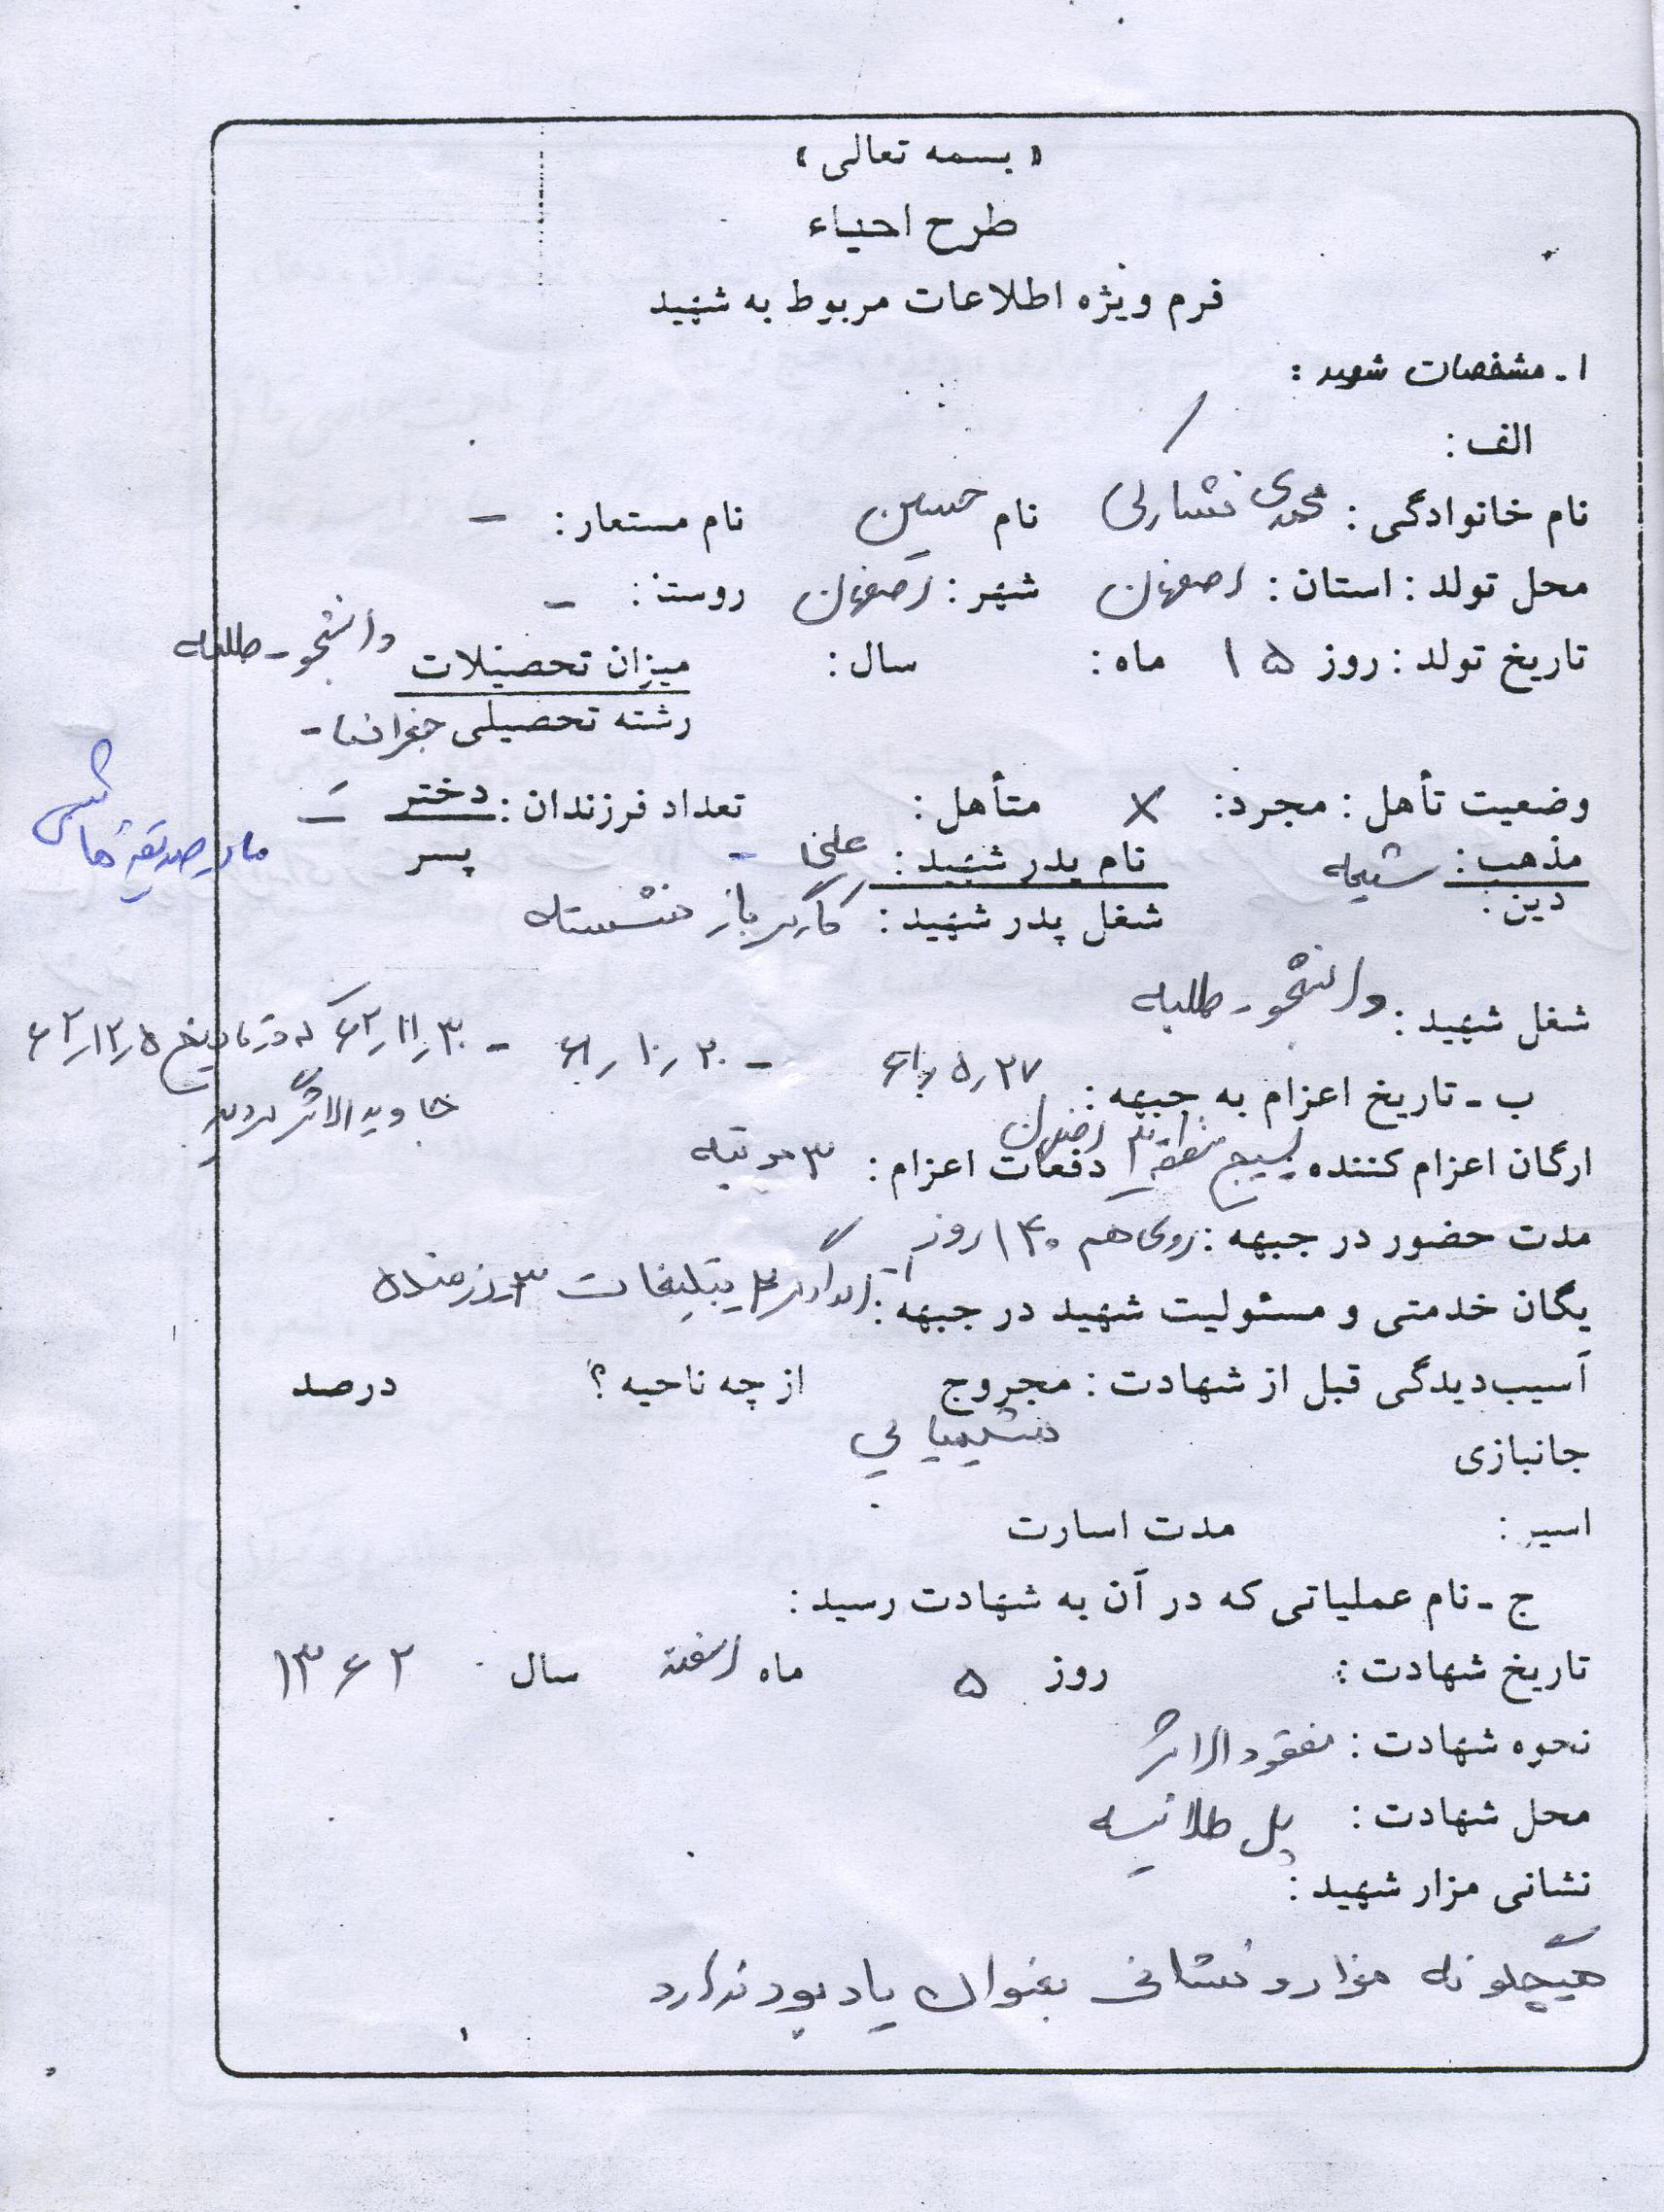 « بسمه تعالی »
طرح احیاء
فرم ویژه اطلاعات مربوط به شهید
۱ ـ مشخصات شهید :
الف :
نام خانوادگی : محمدی نشارکی نام حسین نام مستعار : -
محل تولد : استان : اصفهان شهر : اصفهان روستا : -
تاریخ تولد : روز ۱۵ ماه : سال : میزان تحصیلات دانشجو - طلبه
رشته تحصیلی جغرافیا -
وضعیت تأهل : مجرد : × متأهل : تعداد فرزندان : دختر -
مذهب : شیعه نام پدر شهید : علی - پسر مادر صدیقه
دین : شغل پدر شهید : کارگر بازنشسته
شغل شهید : دانشجو - طلبه
ب ـ تاریخ اعزام به جبهه : ۶۱٫۵٫۲۷ - ۶۱٫۱۰٫۲۰ - ۶۲٫۱۱٫۳۰ که در تاریخ ۶۲٫۱۲٫۵
جاوید الاثر گردید
ارگان اعزام کننده بسیج منطقه ۲ اصفهان دفعات اعزام : ۳ مرتبه
مدت حضور در جبهه : روی هم ۱۴۰ روز
یگان خدمتی و مسئولیت شهید در جبهه : ۱- امدادگر ۲- تبلیغات ۳- رزمنده
آسیب‌دیدگی قبل از شهادت : مجروح از چه ناحیه ؟ درصد
جانبازی شیمیایی
اسیر : مدت اسارت
ج ـ نام عملیاتی که در آن به شهادت رسید :
تاریخ شهادت : روز ۵ ماه اسفند سال ۱۳۶۲
نحوه شهادت : مفقود الاثر
محل شهادت : پل طلائیه
نشانی مزار شهید :
هیچگونه مزار و نشانی بعنوان یادبود ندارد